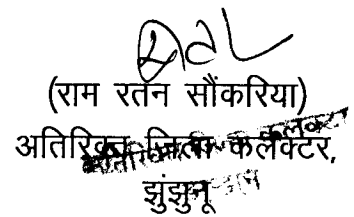 (राम रतन सौंकरिया)
अतिरिक्त जिला कलेक्टर,
झुंझुनू